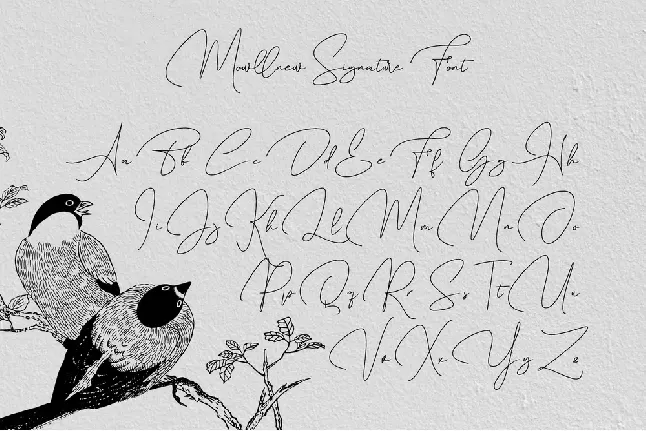 Mowllnew Signature Font
Aa Bb Cc Dd Ee Ff Gg Hh
Ii Jj Kk Ll Mm Nn Oo
Pp Qq Rr Ss Tt Uu
Vv Xx Yy Zz